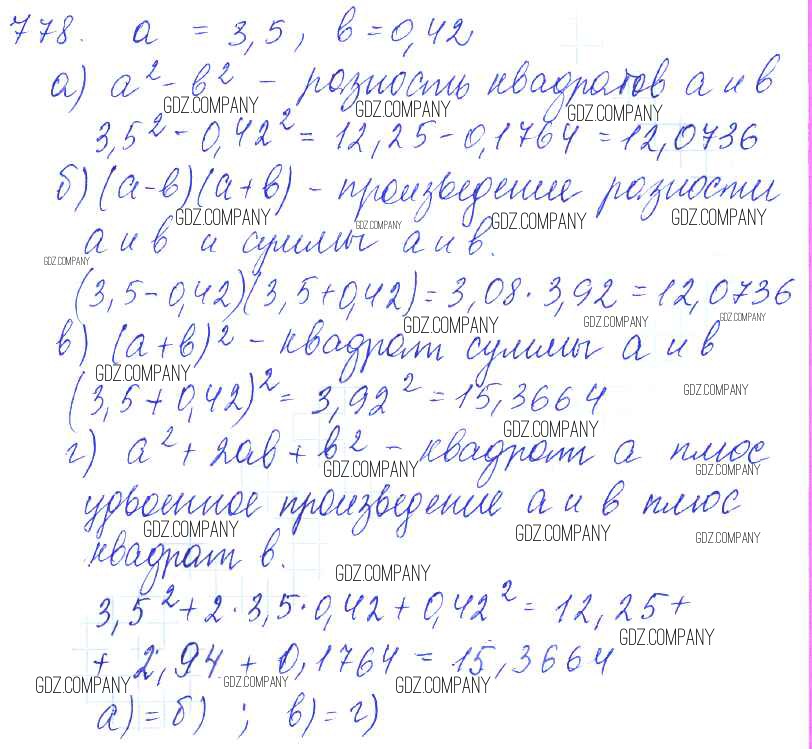 778. a = 3,5, в = 0,42
а) a² - в² - разность квадратов а и в
GDZ.COMPANY GDZ.COMPANY GDZ.COMPANY
3,5² - 0,42² = 12,25 - 0,1764 = 12,0736
б) (а-в)(а+в) - произведение разности
GDZ.COMPANY GDZ.COMPANY GDZ.COMPANY GDZ.COMPANY
а и в и суммы а и в.
GDZ.COMPANY
(3,5-0,42)(3,5+0,42) = 3,08 · 3,92 = 12,0736
GDZ.COMPANY GDZ.COMPANY GDZ.COMPANY
в) (а+в)² - квадрат суммы а и в
GDZ.COMPANY
(3,5+0,42)² = 3,92² = 15,3664
GDZ.COMPANY
GDZ.COMPANY
г) а² + 2ав + в² - квадрат а плюс
GDZ.COMPANY GDZ.COMPANY
удвоенное произведение а и в плюс
GDZ.COMPANY GDZ.COMPANY GDZ.COMPANY
квадрат в.
GDZ.COMPANY
3,5² + 2 · 3,5 · 0,42 + 0,42² = 12,25 +
GDZ.COMPANY
+ 2,94 + 0,1764 = 15,3664
GDZ.COMPANY GDZ.COMPANY GDZ.COMPANY
а) = б) ; в) = г)